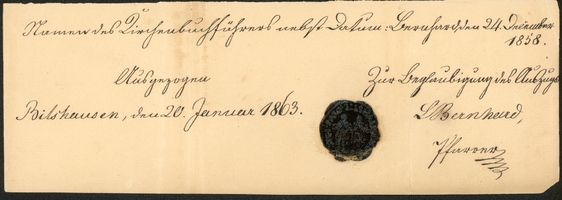 Namen des Kirchenbuchführers nebst Datum: Bernhard, den 24. December
1858.
Ausgezogen
Zur Beglaubigung des Auszugs
Bilshausen, den 20. Januar 1863.
L Bernhard,
Pfarrer